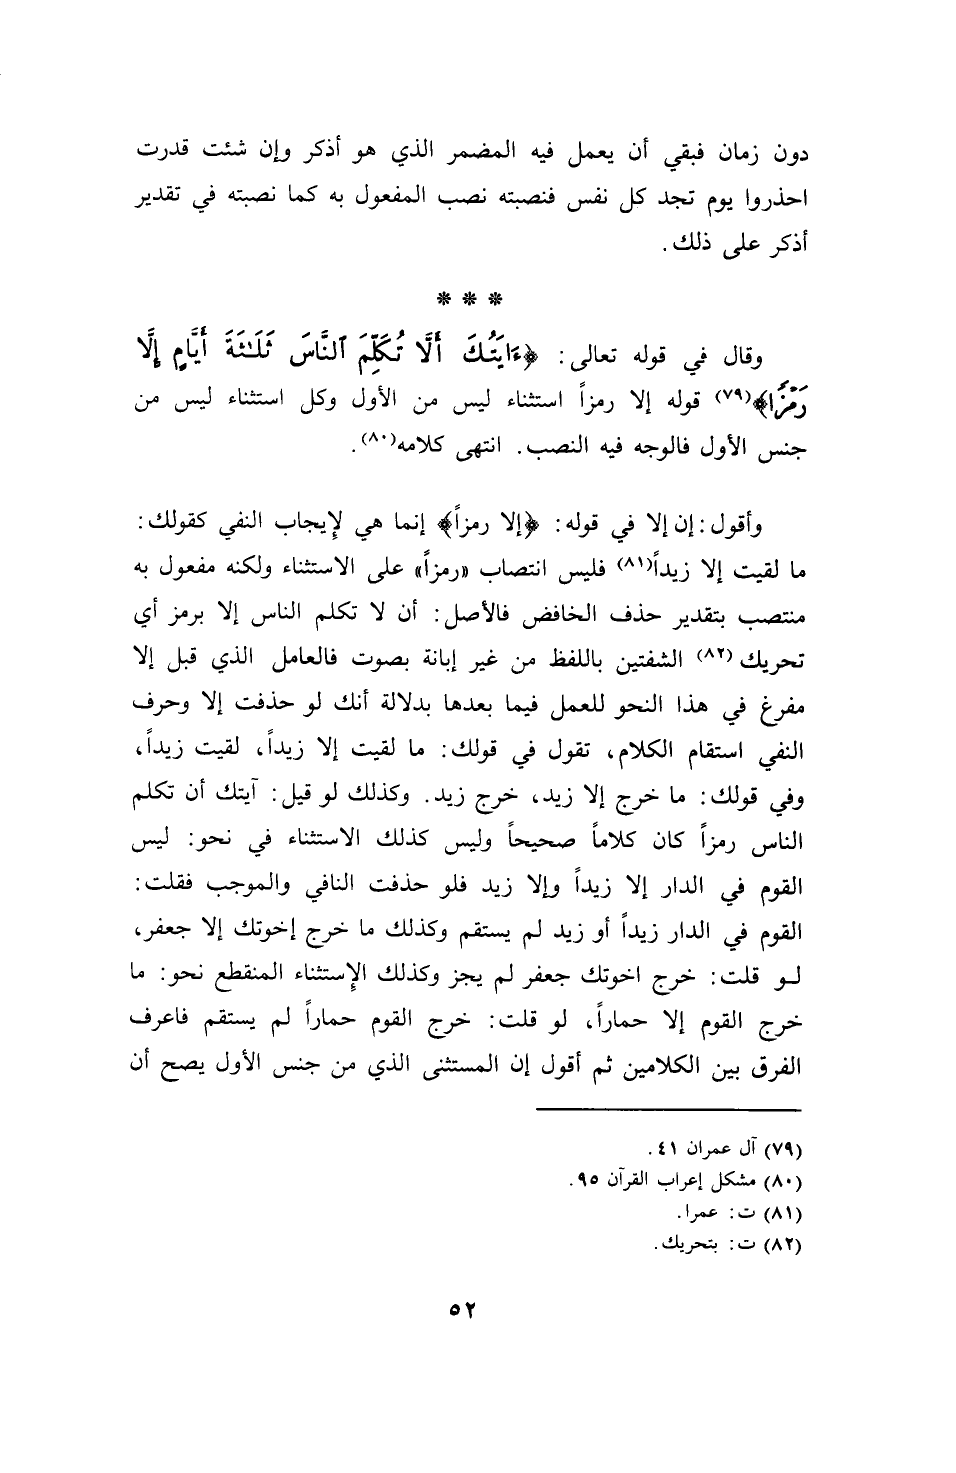 دون زمان فبقي أن يعمل فيه المضمر الذي هو أذكر وإن شئت قدرت
احذروا يوم تجد كل نفس فنصبته نصب المفعول به كما نصبته في تقدير
أذكر على ذلك.
* * *
وقال في قوله تعالى: ﴿ءَايَتُكَ أَلَّا تُكَلِّمَ ٱلنَّاسَ ثَلَـٰثَةَ أَيَّامٍ إِلَّا
رَمْزًا﴾(٧٩) قوله إلا رمزاً استثناء ليس من الأول وكل استثناء ليس من
جنس الأول فالوجه فيه النصب. انتهى كلامه(٨٠).
وأقول: إن إلا في قوله: ﴿إلا رمزاً﴾ إنما هي لإيجاب النفي كقولك:
ما لقيت إلا زيداً(٨١) فليس انتصاب «رمزاً» على الاستثناء ولكنه مفعول به
منتصب بتقدير حذف الخافض فالأصل: أن لا تكلم الناس إلا برمز أي
تحريك(٨٢) الشفتين باللفظ من غير إبانة بصوت فالعامل الذي قبل إلا
مفرغ في هذا النحو للعمل فيما بعدها بدلالة أنك لو حذفت إلا وحرف
النفي استقام الكلام، تقول في قولك: ما لقيت إلا زيداً، لقيت زيداً،
وفي قولك: ما خرج إلا زيد، خرج زيد. وكذلك لو قيل: آيتك أن تكلم
الناس رمزاً كان كلاماً صحيحاً وليس كذلك الاستثناء في نحو: ليس
القوم في الدار إلا زيداً وإلا زيد فلو حذفت النافي والموجب فقلت:
القوم في الدار زيداً أو زيد لم يستقم وكذلك ما خرج إخوتك إلا جعفر،
لو قلت: خرج اخوتك جعفر لم يجز وكذلك الإستثناء المنقطع نحو: ما
خرج القوم إلا حماراً، لو قلت: خرج القوم حماراً لم يستقم فاعرف
الفرق بين الكلامين ثم أقول إن المستثنى الذي من جنس الأول يصح أن
(٧٩) آل عمران ٤١.
(٨٠) مشكل إعراب القرآن ٩٥.
(٨١) ت: عمرا.
(٨٢) ت: بتحريك.
٥٢